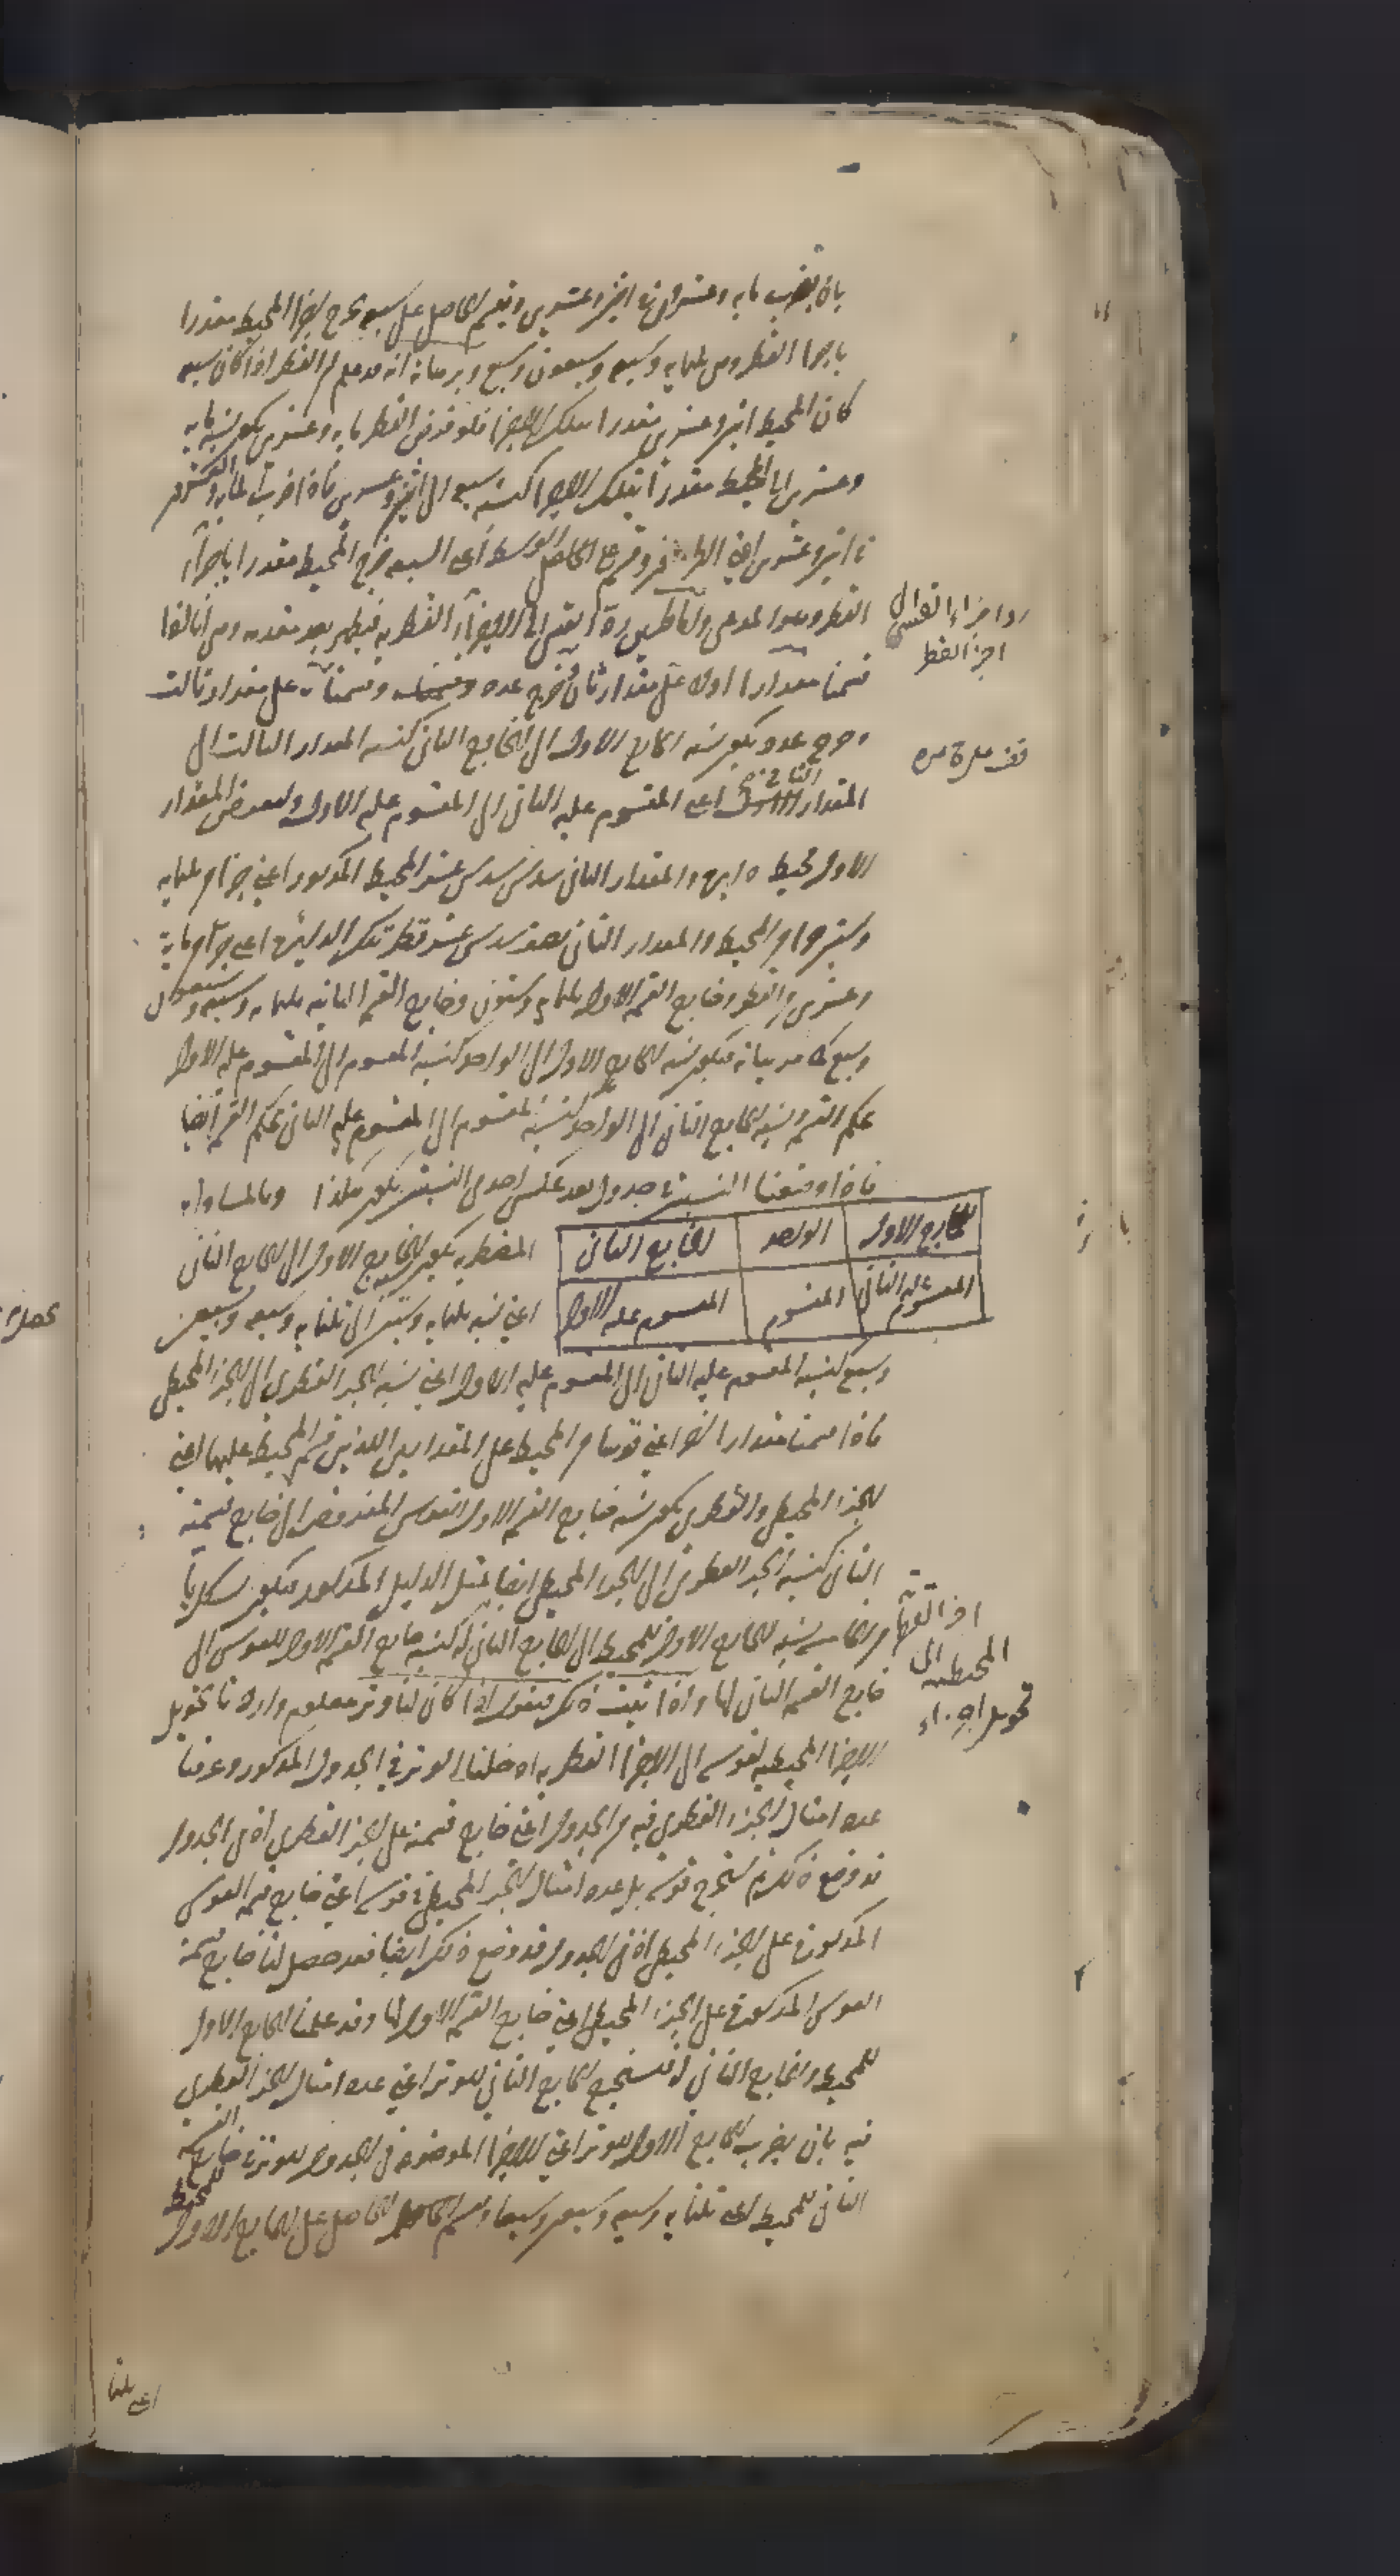 بان يضرب مايه وعشرون في اثنين وعشرين ويقسم الحاصل على سبعه يخرج اجزا المحيط مقدرا
باجزا القطر وهى ثلثمايه وسبعه وسبعون وسبع وبرهانه انه قد علم ان القطر اذا كان سبعه
كان المحيط اثنين وعشرين مقدرا بتلك الاجزا فلو فرض القطر مايه وعشرين يكون نسبه مايه
وعشرين الى المحيط مقدرا بتلك الاجزا كنسبه سبعه الى اثنين وعشرين فاذا ضرب المايه والعشرون
فى اثنين وعشرين اعنى الطرفين وقسم الحاصل على الوسط اعنى السبعه خرج المحيط مقدرا باجزاء
القطر وهو المدعى
قسمنا مقدارا اولا على مقدار ثان فخرج عدد وقسمناه على مقدار ثالث
وخرج عدد يكون نسبه الخارج الاول الى الخارج الثانى كنسبه المقدار الثالث الى
المقدار الثانى اعنى المقسوم عليه الثانى الى المقسوم عليه الاول وليفرض المقدار
الاول محيط دايره والمقدار الثانى سدس سدس عشر المحيط المذكور اعنى جزا من ثلثمايه
وستين جزا من المحيط والمقدار الثالث نصف سدس عشر قطر تلك الدايره اعنى جزا من مايه
وعشرين من القطر وخارج القسمه الاولى ثلثمايه وستون وخارج القسمه الثانيه ثلثمايه وسبعه وسبعون
وسبع كما مر بيانه فيكون نسبه الخارج الاول الى الواحد كنسبه المقسوم الى المقسوم عليه الاول
بحكم القسمه ونسبه الخارج الثانى الى الواحد كنسبه المقسوم الى المقسوم عليه الثانى بحكم القسمه ايضا
فاذا وضعنا النسبتين فى جدول بعد عكس احدى النسبتين يكون هكذا وبالمساواه
الخارج الاول الواحد الخارج الثانى
المقسوم عليه الثانى المقسوم المقسوم عليه الاول
المضطربه يكون نسبه الخارج الاول الى الخارج الثانى
اعنى نسبه ثلثمايه وستين الى ثلثمايه وسبعه وسبعين
وسبع كنسبه المقسوم عليه الثانى الى المقسوم عليه الاول اعنى نسبه الجزء القطرى الى الجزء المحيطى
فاذا قسمنا مقدارا اخر اعنى قوسا من المحيط على المقدارين اللذين قسم المحيط عليهما اعنى
الجزء المحيطى والقطرى يكون نسبه خارج القسمه الاولى للقوس المفروضه الى خارج قسمته
الثانى كنسبه الجزء القطرى الى الجزء المحيطى ايضا بمثل الدليل المذكور فيكون
نسبه الخارج الاول للمحيط الى الخارج الثانى له كنسبه خارج القسمه الاولى للقوس الى
خارج القسمه الثانى لها واذا ثبت ذلك فنقول اذا كان لنا وتر معلوم واردنا تحويل
الاجزا المحيطيه لقوسه الى الاجزا القطريه ادخلنا الوتر فى الجدول المذكور وعرفنا
عدد امثال الجزء القطرى فيه من الجدول اعنى خارج قسمته على الجزء القطرى اذ فى الجدول
قد وضع ذلك ثم نستخرج قوسه بل عدد امثال الجزء المحيطى فى قوسه اعنى خارج قسمه القوس
المذكوره على الجزء المحيطى اذ فى الجدول قد وضع ذلك ايضا فقد حصل لنا خارج قسمه
القوس المذكوره على الجزء المحيطى اعنى خارج القسمه الاولى لها وقد علمنا الخارج الاول
للمحيط والخارج الثانى له فنستخرج الخارج الثانى للوتر اعنى عدد امثال الجزء القطرى
فيه بان يضرب الخارج الاول للوتر اعنى الاجزا الموضوعه فى الجدول للوتر فى خارج القسمه
الثانى للمحيط اعنى ثلثمايه وسبعه وسبعين وسبعا ويقسم الحاصل على الخارج الاول للمحيط
اجزاء القسى الى
اجزا القطر
المحيطيه الى
تحويل اجزاء
اعنى ثلثما